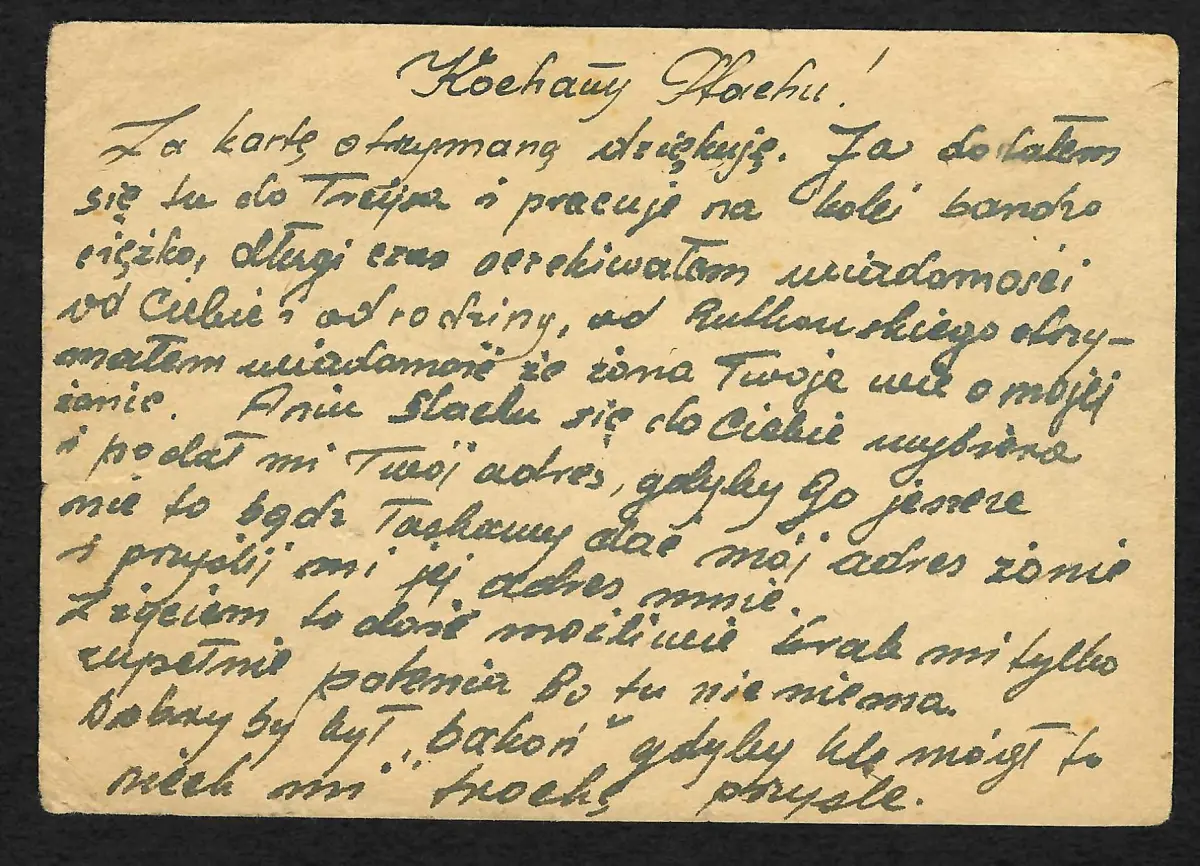 Kochany Stachu!
Za kartę otrzymaną dziękuję. Ja dostałem
się tu do i pracuję na kolei bardzo
ciężko, długi czas oczekiwałem wiadomości
od Ciebie i od rodziny, od Rutkowskiego otrzy-
małem wiadomość że żona Twoja wie o mojej
żonie. Stachu się do Ciebie wybiera
i podał mi Twój adres, gdyby Go jeszcze
nie to bądź łaskawy dać mój adres żonie
i przyślij mi jej adres mnie.
Z życiem to dość możliwie brak mi tylko
zupełnie palenia Bo tu nic niema.
Dobry by był „bakoń" gdyby kto mógł to
niech mi trochę przyśle.